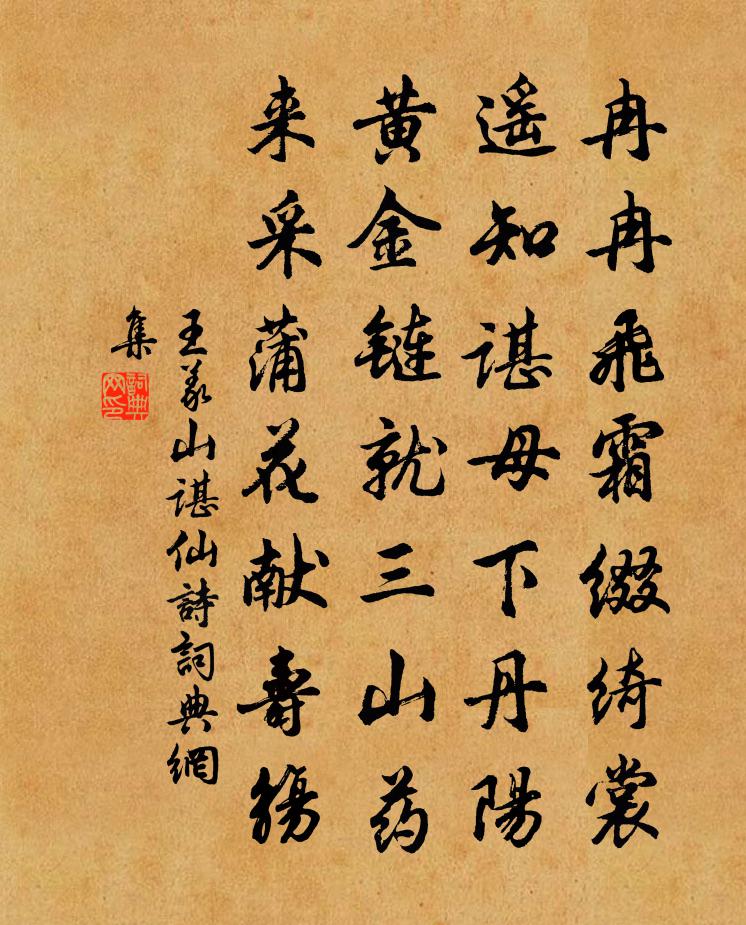 冉冉飛霜綴綺裳
遥知諶母下丹陽
黄金鏈就三山药
来采蒲花献壽觴
王羲山諶仙詩詞典網
集
詞典
网印